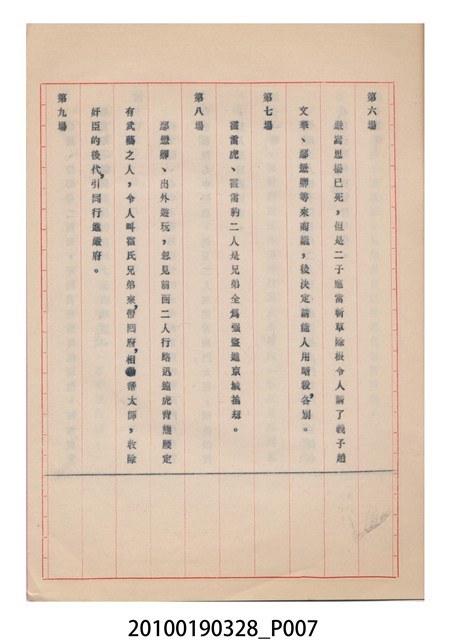 第六場
嚴嵩思楊已死，但是二子應當斬草除根令人請了義子趙
文華、鄢懋卿等來商議，後決定請能人用暗殺，各別。
第七場
霍雷虎、霍雷豹二人是兄弟全為强盜進京城搶刼。
第八場
鄢懋卿、出外遊玩，忽見前面二人行路迅速虎背熊腰定
有武藝之人，令人叫霍氏兄弟來，帶回府，相幫太師，收除
奸臣的後代，引同行進嚴府。
第九場
20100190328_P007